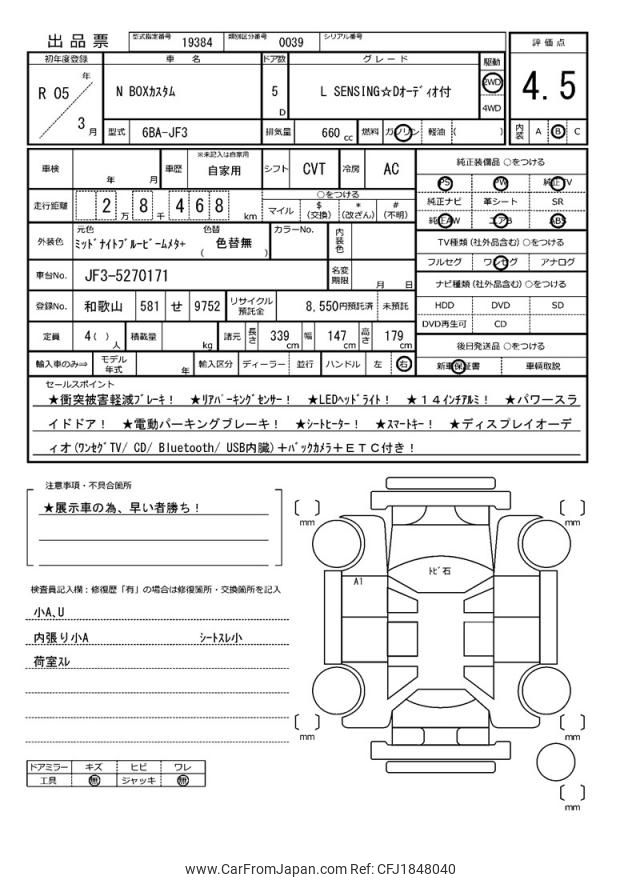 出品票 型式指定番号 19384 類別区分番号 0039 シリアル番号
評価点
4.5
内装 A B C
初年度登録 車名 ドア数 グレード 駆動
R 05 年 3 月
N BOXカスタム 5 D L SENSING☆Dオーディオ付 2WD 4WD
型式 6BA-JF3 排気量 660 cc 燃料 ガソリン 軽油 ( )
車検 年 月 車歴 ※未記入は自家用 自家用 シフト CVT 冷房 AC
走行距離 2 万 8 千 4 6 8 km
○をつける
マイル $(交換) *(改ざん) #(不明)
外装色 元色 ミッドナイトブルービームメタ+ 色替 ( 色替無 ) カラーNo. 内装色
車台No. JF3-5270171 名変期限 月 日
登録No. 和歌山 581 せ 9752 リサイクル預託金 8,550円預託済 未預託
定員 4( ) 人 積載量 kg 諸元 長さ 339 cm 幅 147 cm 高さ 179 cm
輸入車のみ⇒ モデル年式 年 輸入区分 ディーラー 並行 ハンドル 左 右
純正装備品 ○をつける
PS PW 純正TV
純正ナビ 革シート SR
純正AW エアB ABS
TV種類 (社外品含む) ○をつける
フルセグ ワンセグ アナログ
ナビ種類 (社外品含む) ○をつける
HDD DVD SD
DVD再生可 CD
後日発送品 ○をつける
新車保証書 車輌取説
セールスポイント
★衝突被害軽減ブレーキ! ★リアパーキングセンサー! ★LEDヘッドライト! ★14インチアルミ! ★パワースラ
イドドア! ★電動パーキングブレーキ! ★シートヒーター! ★スマートキー! ★ディスプレイオーデ
ィオ(ワンセグTV/ CD/ Bluetooth/ USB内臓)+バックカメラ+ETC付き!
注意事項・不具合箇所
★展示車の為、早い者勝ち!
検査員記入欄:修復歴「有」の場合は修復箇所・交換箇所を記入
小A、U
内張り小A シートスレ小
荷室スレ
ドアミラー キズ ヒビ ワレ
工具 無 ジャッキ 無
mm
mm
トビ石
A1
mm
mm
mm
www.CarFromJapan.com Ref: CFJ1848040